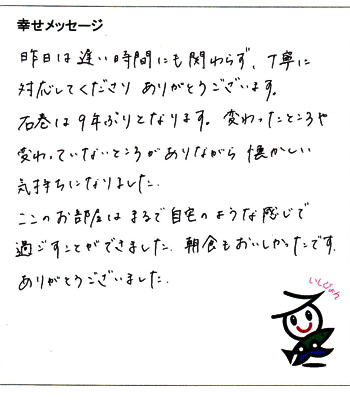 幸せメッセージ
昨日は遅い時間にも関わらず、丁寧に
対応してくださり ありがとうございます。
石巻は9年ぶりとなります。変わったところや
変わっていないところがありながら 懐かしい
気持ちになりました.
ここのお部屋は まるで自宅のような感じで
過ごすことができました. 朝食もおいしかったです.
ありがとうございました.
いしぴょん